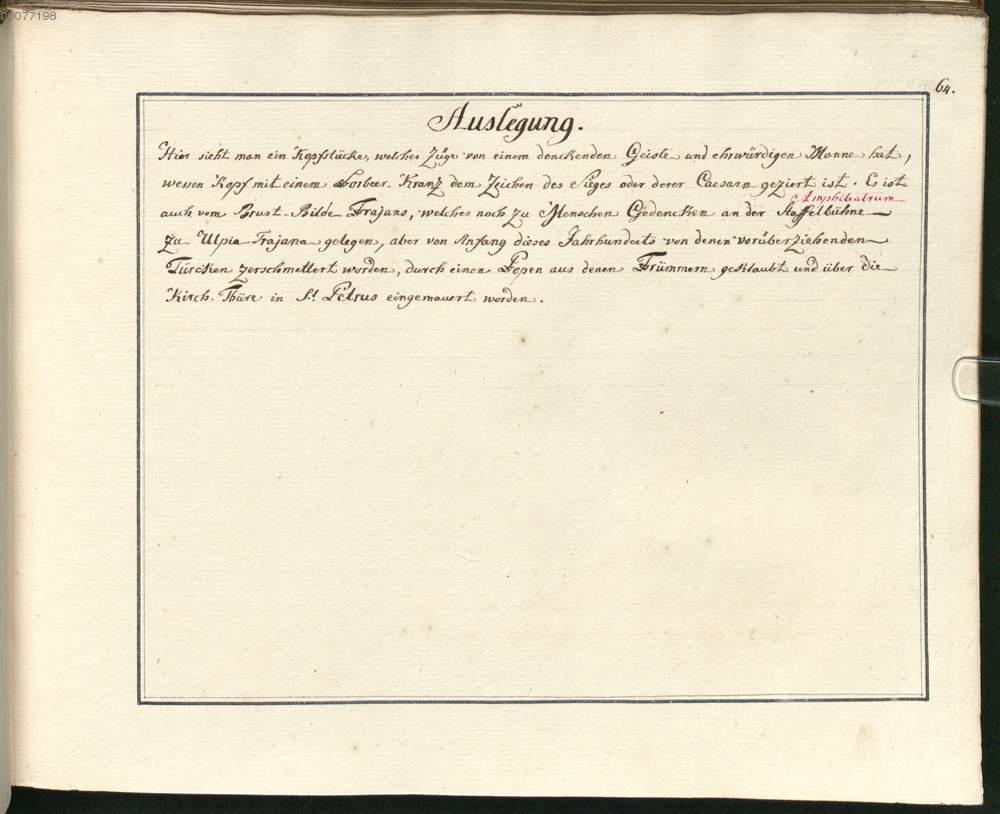 00077198
64.
Auslegung.
Hier sieht man ein Kopfstücke, welches Züge von einem denckenden Geiste und ehrwürdigen Manne hat,
wessen Kopf mit einem Lorbeer-Kranz dem Zeichen des Sieges oder derer Caesarn geziert ist. Es ist
Amphiteatrum
auch vom Brust-Bilde Trajans, welches noch zu Menschen Gedencken an der Staffelbühne
zu Ulpia Trajana gelegen, aber von Anfang dieses Jahrhunderts von denen vorüberziehenden
Türcken zerschmettert worden, durch einen Popen aus denen Trümmern geklaubt und über die
Kirch-Thüre in St. Petrus eingemauert worden.